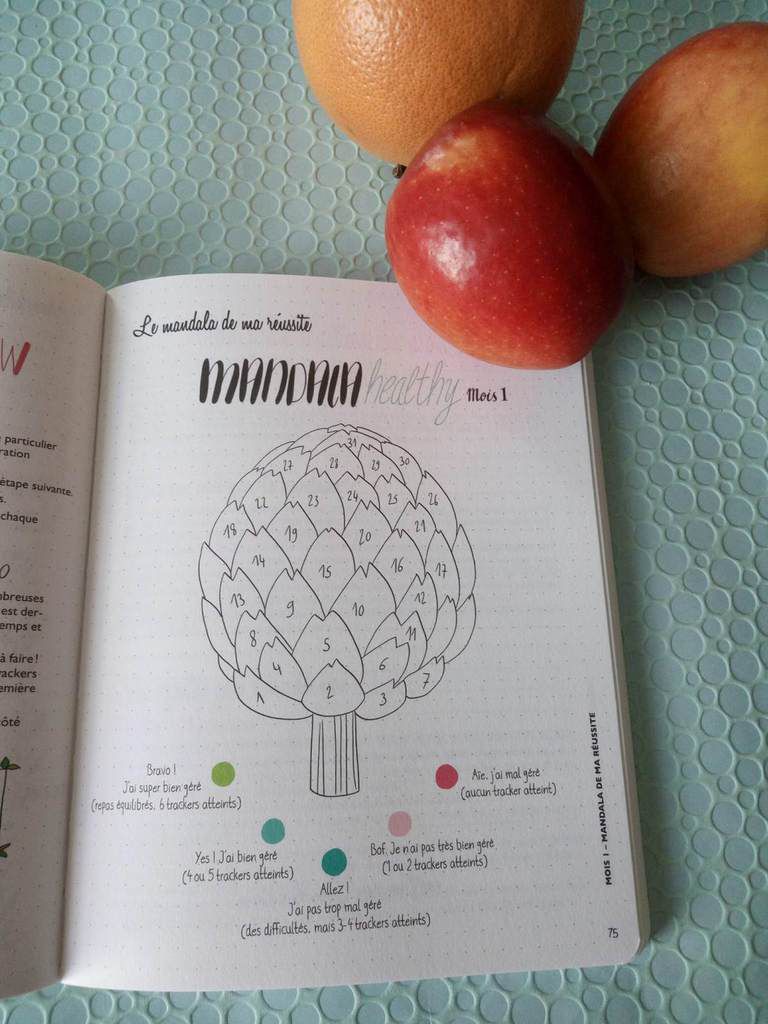 W
particulier
ration
étape suivante.
s.
chaque
o
mbreuses
est der-
emps et
à faire !
rackers
emière
ôté
Le mandala de ma réussite
MANDALA healthy Mois 1
31
27 28 29 30
22 23 24 25 26
18 19 20 21
14 15 16 17
13 9 10 12
8 5 11
4 6
1 2 3 7
Bravo !
J'ai super bien géré
(repas équilibrés, 6 trackers atteints)
Yes ! J'ai bien géré
(4 ou 5 trackers atteints)
Allez !
J'ai pas trop mal géré
(des difficultés, mais 3-4 trackers atteints)
Bof. Je n'ai pas très bien géré
(1 ou 2 trackers atteints)
Aïe, j'ai mal géré
(aucun tracker atteint)
MOIS 1 – MANDALA DE MA RÉUSSITE
75